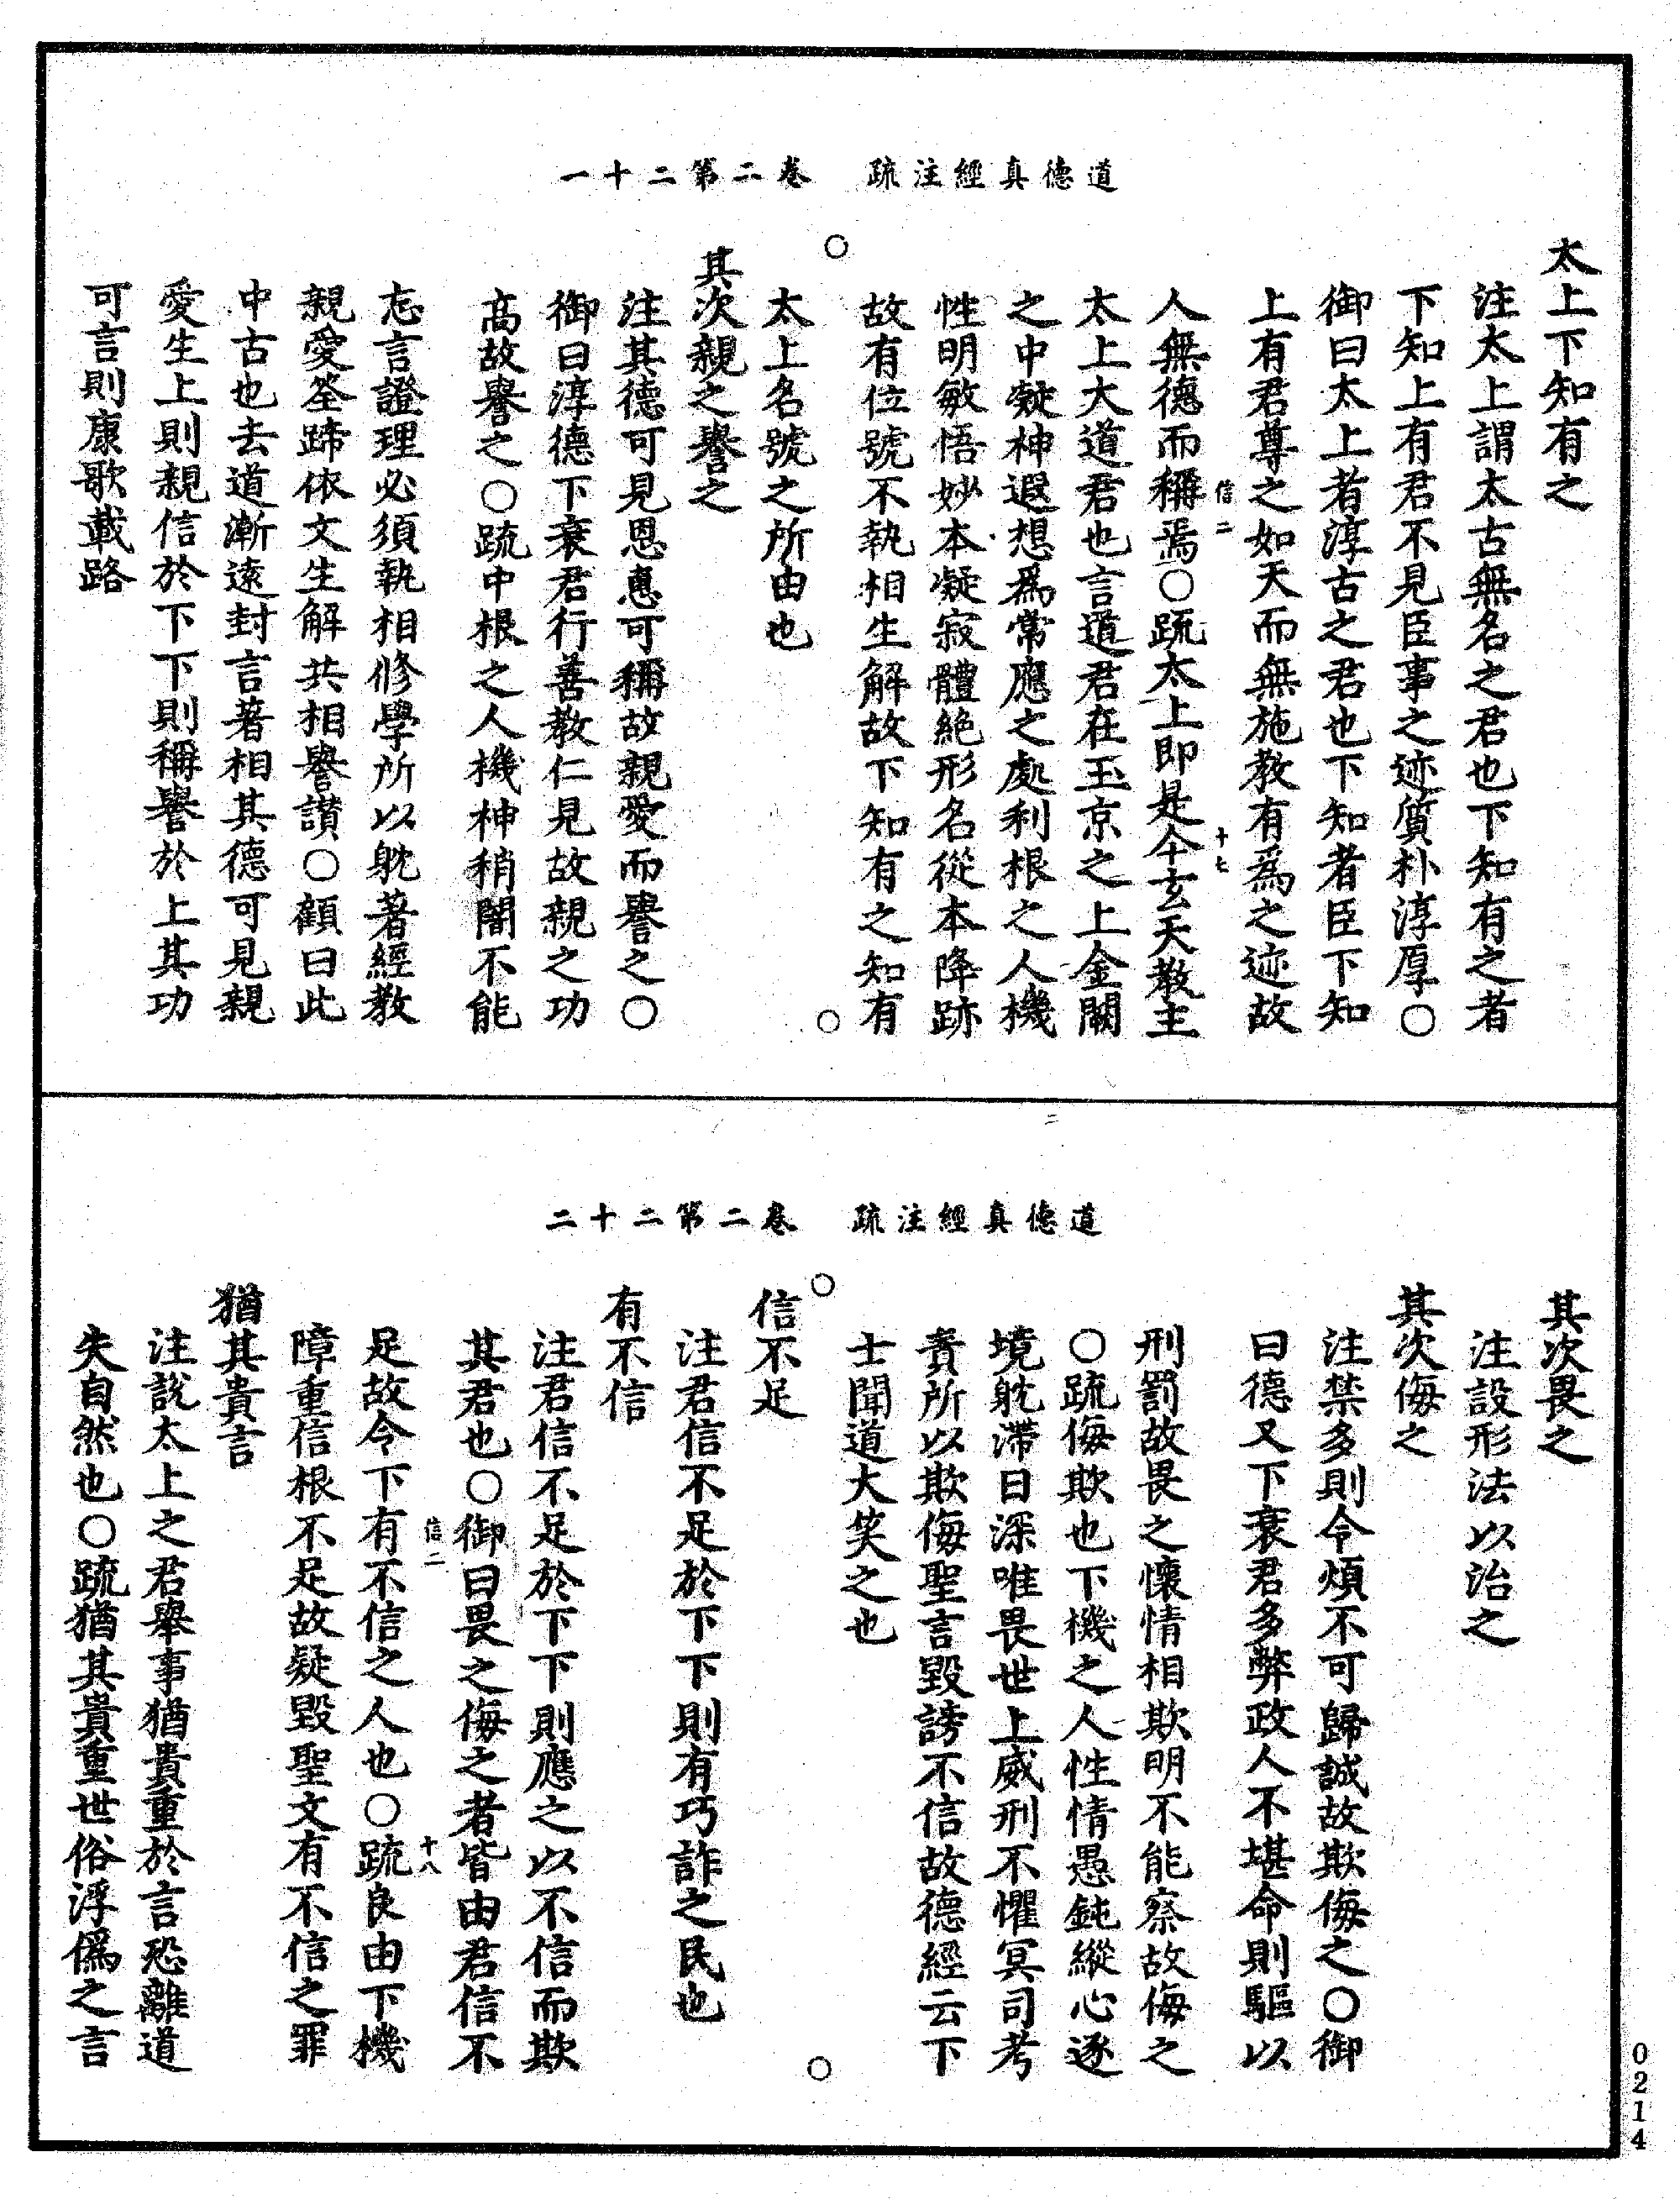 道德真經注疏　卷二第二十一
太上下知有之
注太上謂太古無名之君也下知有之者
下知上有君不見臣事之迹質朴淳厚○
御曰太上者淳古之君也下知者臣下知
上有君尊之如天而無施教有爲之迹故
信二　十七
人無德而稱焉○疏太上即是今玄天教主
太上大道君也言道君在玉京之上金闕
之中凝神遐想爲常應之處利根之人機
性明敏悟妙本凝寂體絶形名從本降跡
故有位號不執相生解故下知有之知有
太上名號之所由也
其次親之譽之
注其德可見恩惠可稱故親愛而譽之○
御曰淳德下衰君行善教仁見故親之功
高故譽之○疏中根之人機神稍闇不能
忘言證理必須執相修學所以躭著經教
親愛筌蹄依文生解共相譽讃○顧曰此
中古也去道漸遠封言著相其德可見親
愛生上則親信於下下則稱譽於上其功
可言則康歌載路
道德真經注疏　卷二第二十二
其次畏之
注設形法以治之
其次侮之
注禁多則令煩不可歸誠故欺侮之○御
曰德又下衰君多弊政人不堪命則驅以
刑罰故畏之懷情相欺明不能察故侮之
○疏侮欺也下機之人性情愚鈍縱心逐
境躭滯日深唯畏世上威刑不懼冥司考
責所以欺侮聖言毀謗不信故德經云下
士聞道大笑之也
信不足
注君信不足於下下則有巧詐之民也
有不信
注君信不足於下下則應之以不信而欺
其君也○御曰畏之侮之者皆由君信不
信二　十八
足故令下有不信之人也○疏良由下機
障重信根不足故疑毀聖文有不信之罪
猶其貴言
注說太上之君舉事猶貴重於言恐離道
失自然也○疏猶其貴重世俗浮僞之言
0214